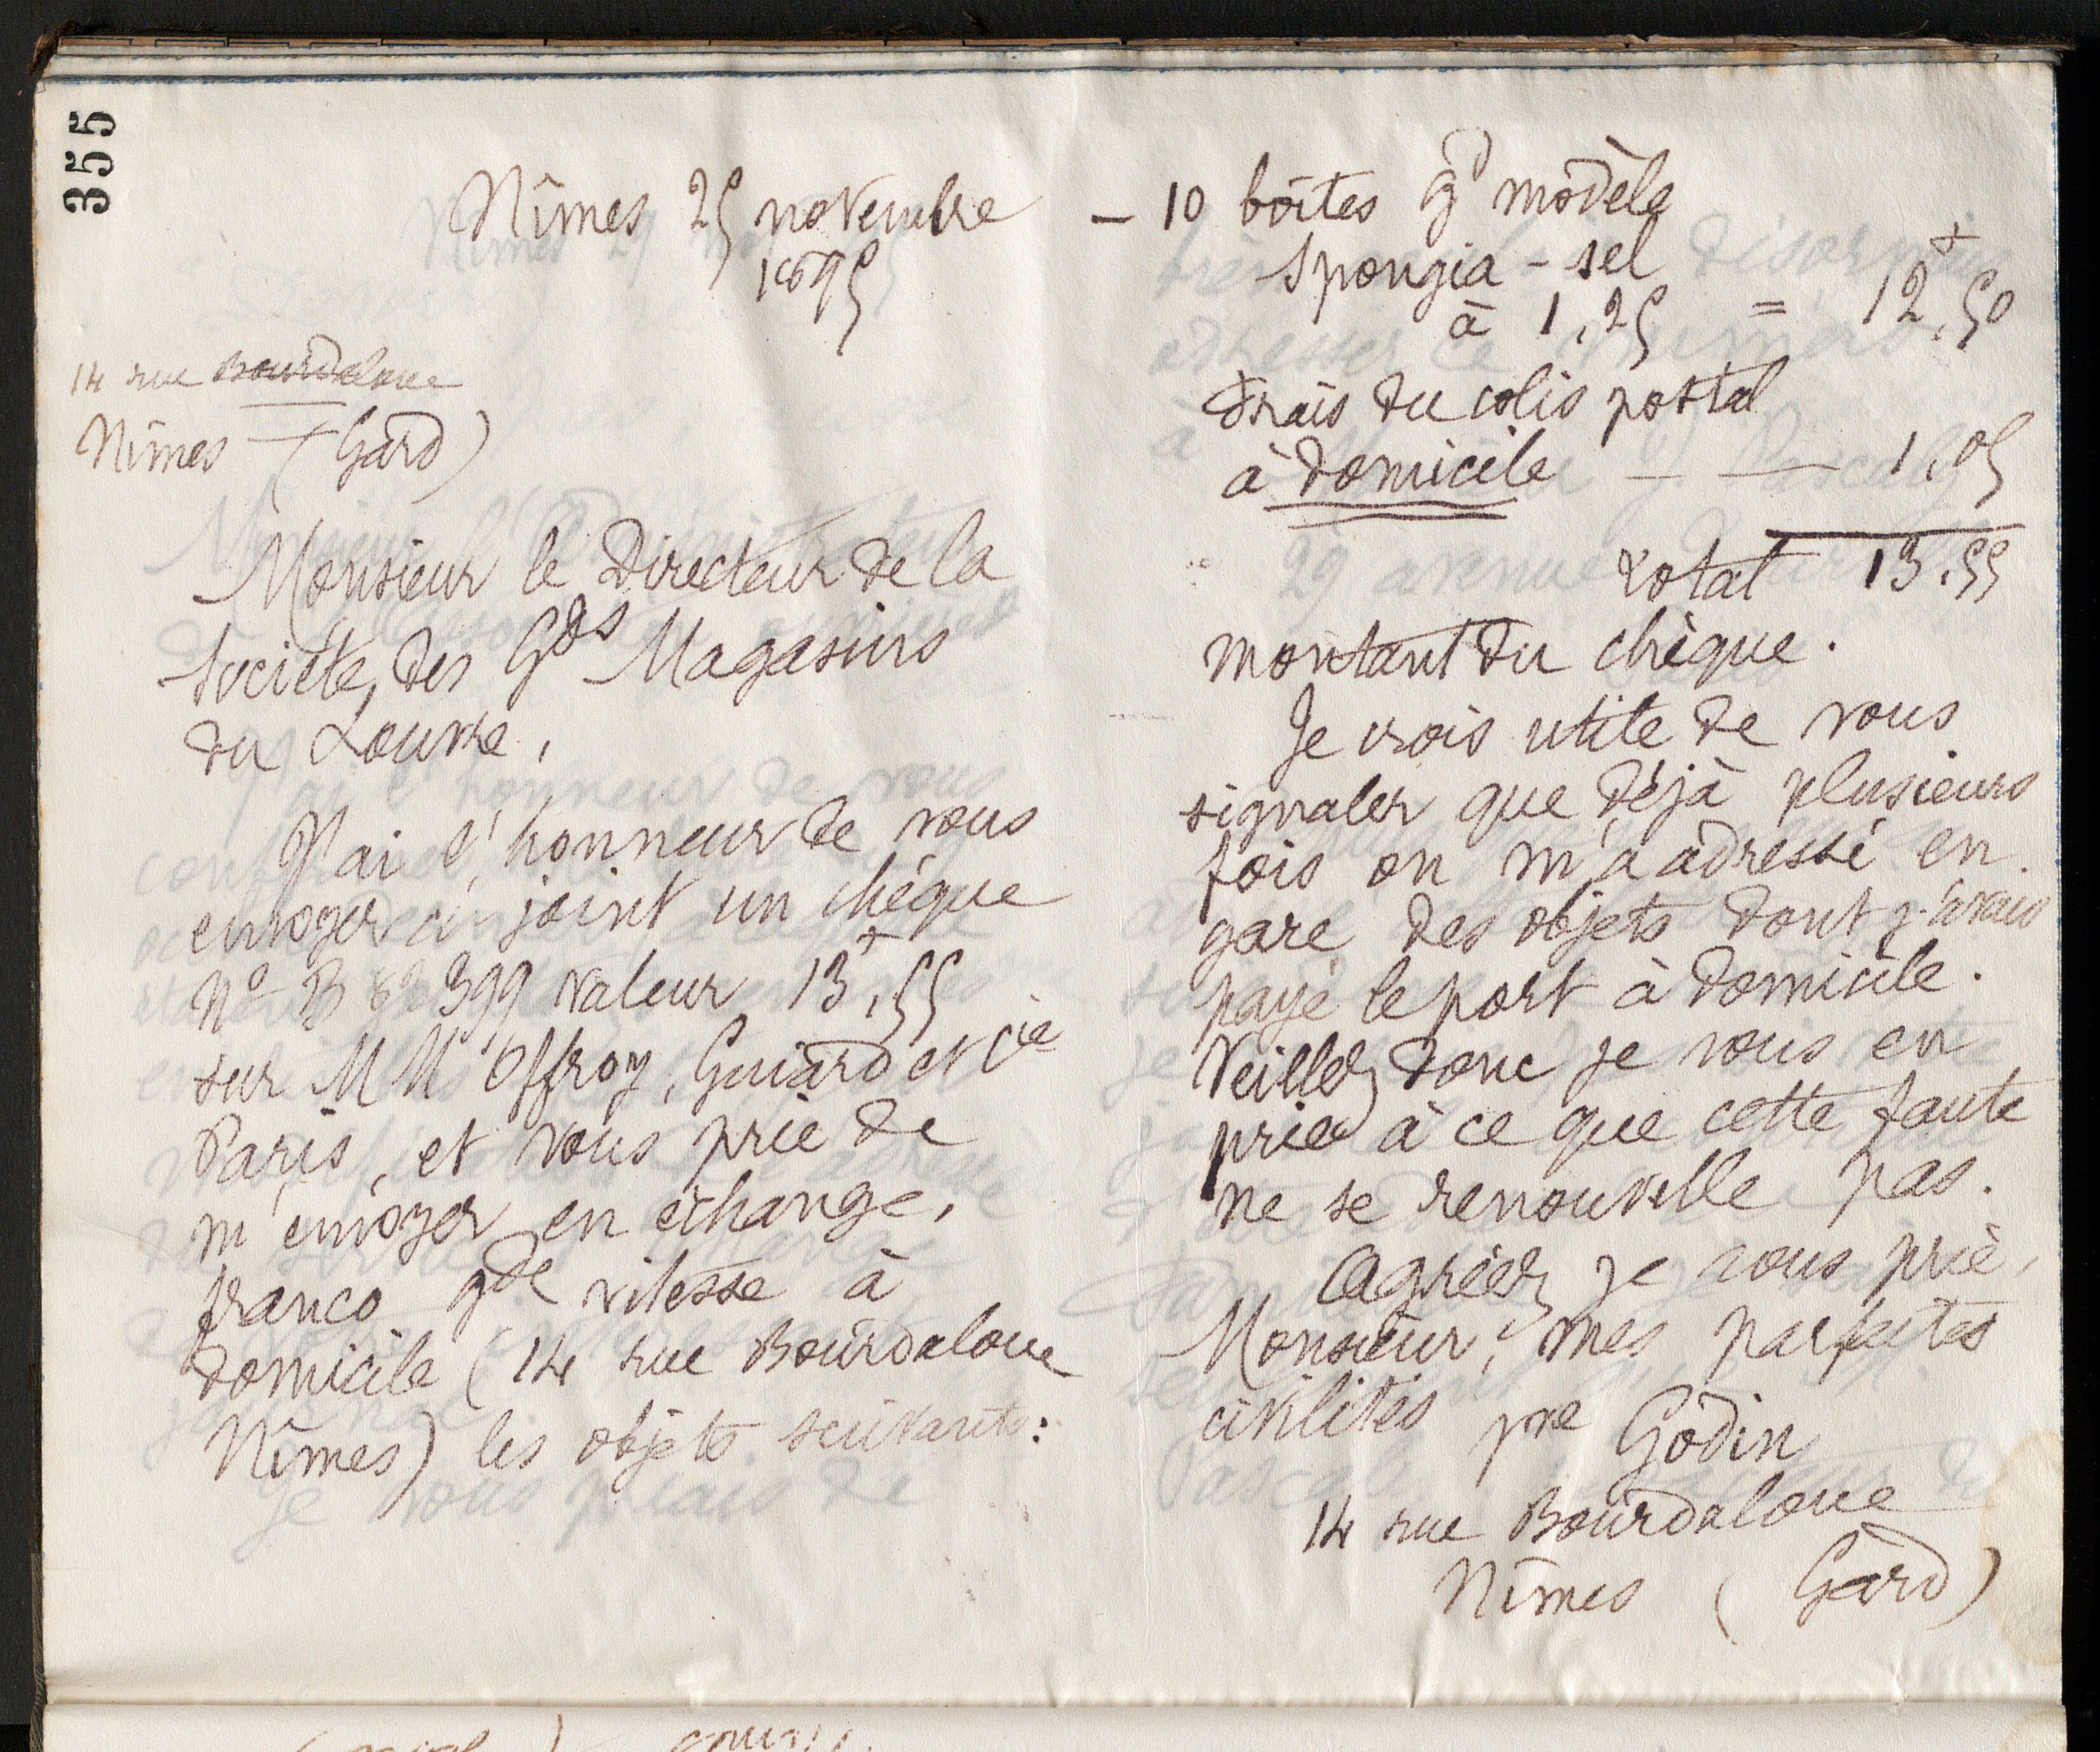 355
Nîmes 25 novembre
1895
14 rue Bourdaloue
Nîmes (Gard)
Monsieur le Directeur de la
Société des Gds Magasins
du Louvre,
J'ai l'honneur de vous
envoyer ci joint un chèque
No B 82399 valeur 13f,55
sur MM Offroy, Guiard et Cie
Paris, et vous prie de
m'envoyer en échange,
franco gde vitesse à
domicile (14 rue Bourdaloue
Nîmes) les objets suivants:
– 10 boîtes gd modèle
Spongia-sel
à 1,25 = 12f,50
Frais du colis postal
à domicile — — 1,05
Total 13,55
montant du chèque.
Je crois utile de vous
signaler que déjà plusieurs
fois on m'a adressé en
gare des objets dont j'avais
payé le port à domicile.
Veillez donc je vous en
prie à ce que cette faute
ne se renouvelle pas.
Agréez, je vous prie,
Monsieur, mes parfaites
civilités
pre Godin
14 rue Bourdaloue
Nîmes (Gard)